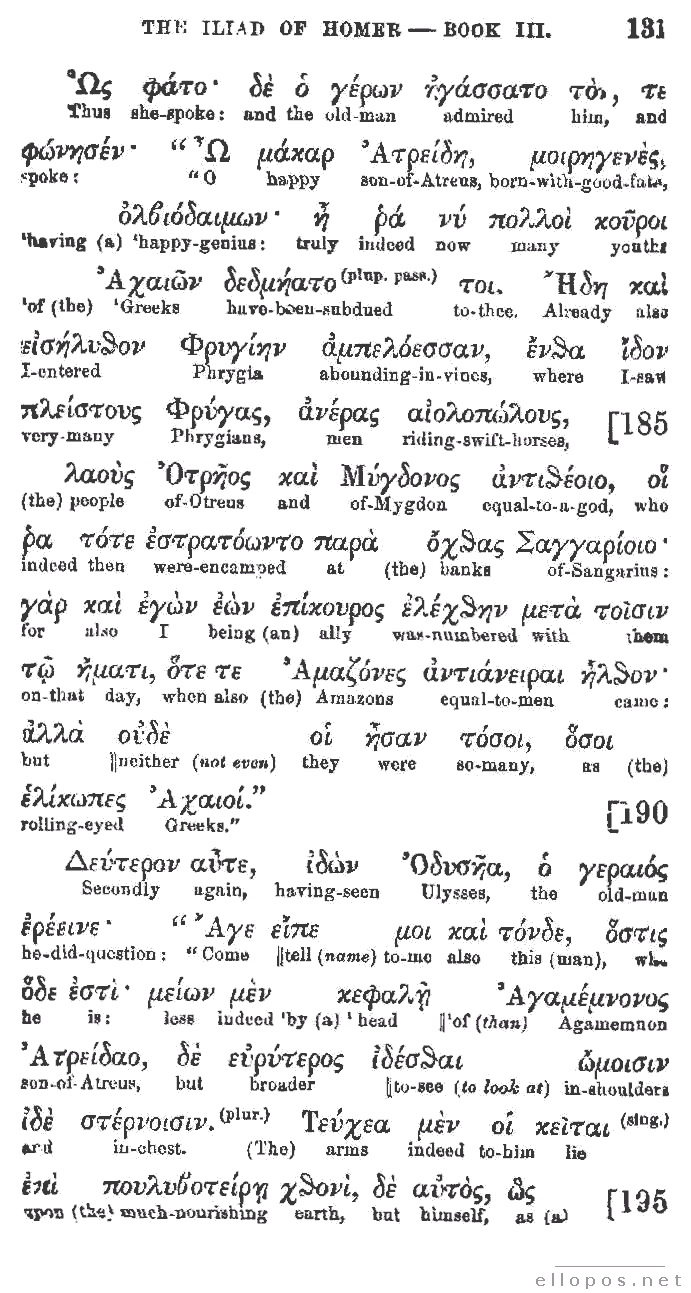 THE ILIAD OF HOMER — BOOK III. 131
Ὣς φάτο· δὲ ὁ γέρων ἠγάσσατο τὸν, τε
Thus she-spoke: and the old-man admired him, and
φώνησέν· “Ὦ μάκαρ Ἀτρείδη, μοιρηγενὲς,
spoke: “O happy son-of-Atreus, born-with-good-fate,
ὀλβιόδαιμων· ἦ ῥά νύ πολλοὶ κοῦροι
'having (a) 'happy-genius: truly indeed now many youths
Ἀχαιῶν δεδμήατο (plup. pass.) τοι. Ἤδη καὶ
'of (the) 'Greeks have-been-subdued to-thee. Already also
εἰσήλυθον Φρυγίην ἀμπελόεσσαν, ἔνθα ἴδον
I-entered Phrygia abounding-in-vines, where I-saw
πλείστους Φρύγας, ἀνέρας αἰολοπώλους, [185
very-many Phrygians, men riding-swift-horses,
λαοὺς Ὀτρῆος καὶ Μύγδονος ἀντιθέοιο, οἵ
(the) people of-Otreus and of-Mygdon equal-to-a-god, who
ῥα τότε ἐστρατόωντο παρὰ ὄχθας Σαγγαρίοιο·
indeed then were-encamped at (the) banks of-Sangarius:
γὰρ καὶ ἐγὼν ἐὼν ἐπίκουρος ἐλέχθην μετὰ τοῖσιν
for also I being (an) ally was-numbered with them
τῷ ἤματι, ὅτε τε Ἀμαζόνες ἀντιάνειραι ἦλθον·
on-that day, when also (the) Amazons equal-to-men came:
ἀλλὰ οὐδὲ οἱ ἦσαν τόσοι, ὅσοι
but ‖neither (not even) they were so-many, as (the)
ἑλίκωπες Ἀχαιοί.” [190
rolling-eyed Greeks.”
Δεύτερον αὖτε, ἰδὼν Ὀδυσῆα, ὁ γεραιός
Secondly again, having-seen Ulysses, the old-man
ἐρέεινε· “Ἄγε εἶπε μοι καὶ τόνδε, ὅστις
he-did-question: “Come ‖tell (name) to-me also this (man), who
ὅδε ἐστί· μείων μὲν κεφαλῇ Ἀγαμέμνονος
he is: less indeed 'by (a) 'head ‖'of (than) Agamemnon
Ἀτρείδαο, δὲ εὐρύτερος ἰδέσθαι ὤμοισιν
son-of-Atreus, but broader ‖to-see (to look at) in-shoulders
ἰδὲ στέρνοισιν. (plur.) Τεύχεα μὲν οἱ κεῖται (sing.)
and in-chest. (The) arms indeed to-him lie
ἐπὶ πουλυβοτείρῃ χθονὶ, δὲ αὐτὸς, ὣς [195
upon (the) much-nourishing earth, but himself, as (a)
ellopos.net